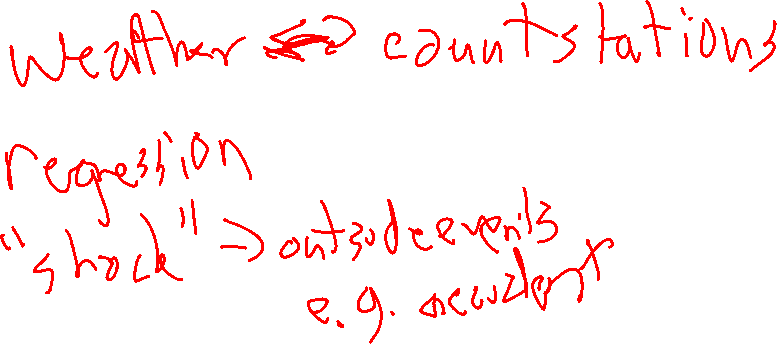 weather ↔ countstations
regression
"shock" → outside events
e.g. accident